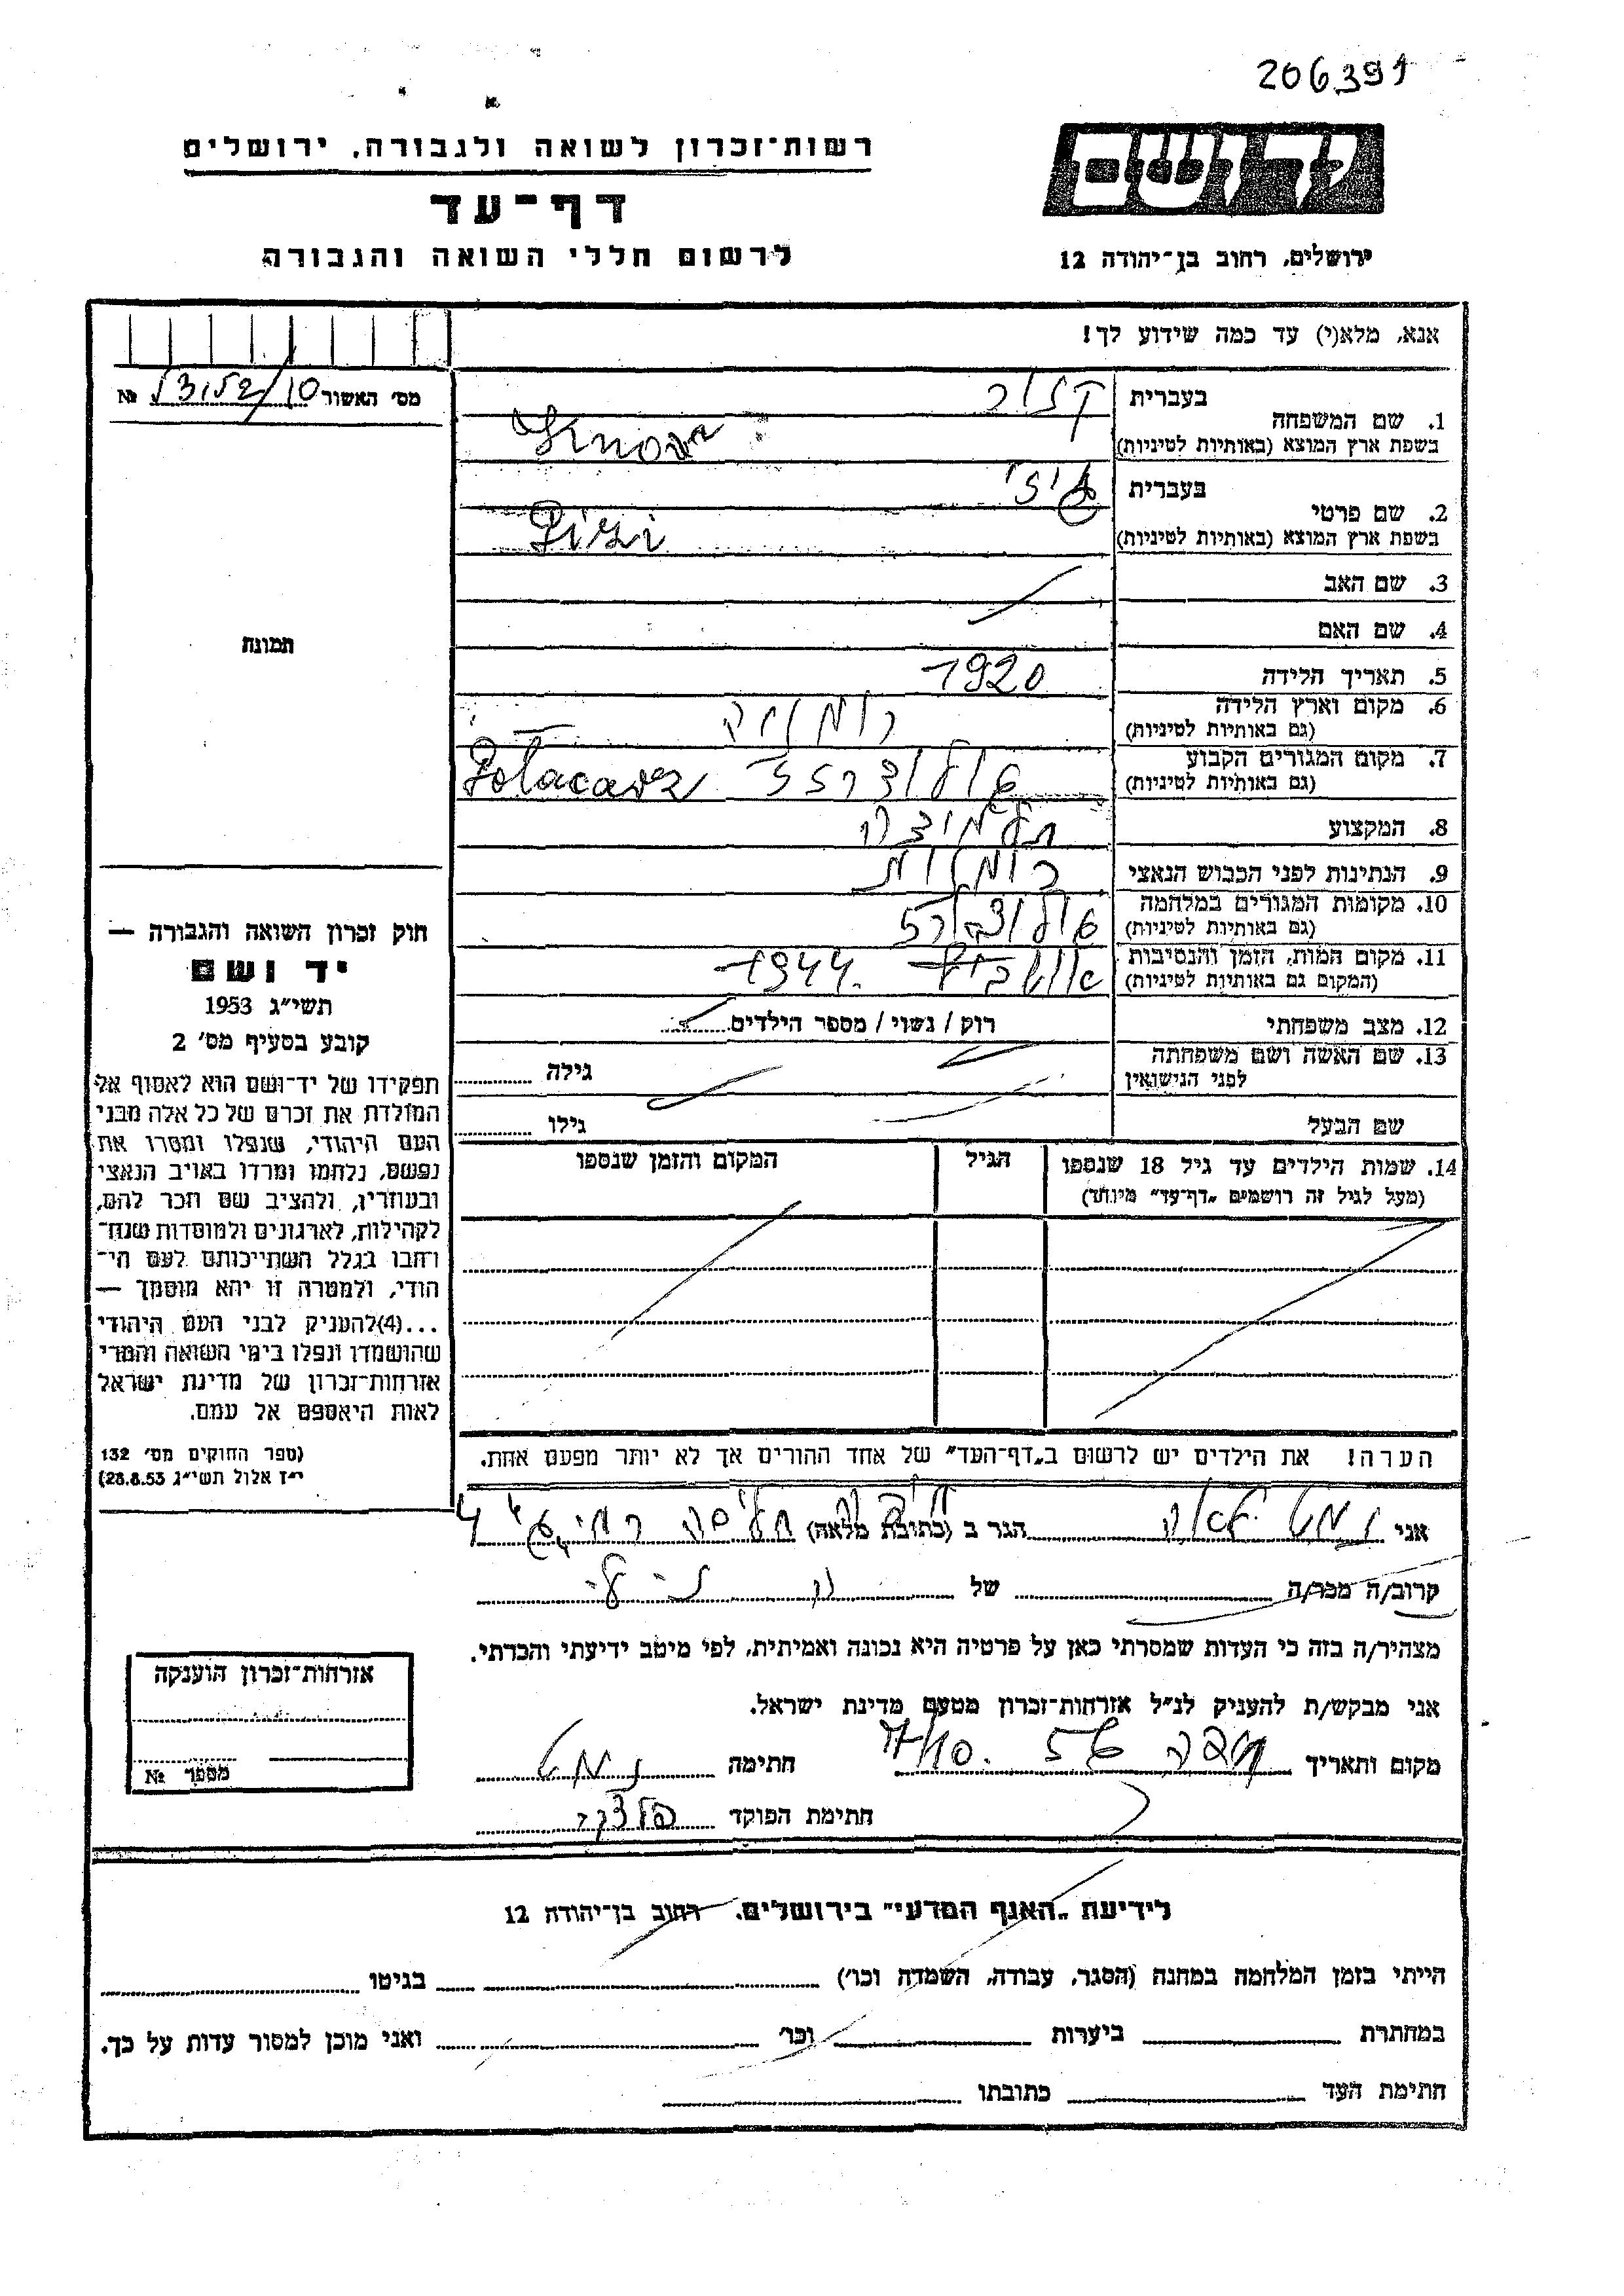 206391
רשות־זכרון לשואה ולגבורה, ירושלים
דף־עד
לרשום חללי השואה והגבורה
יד ושם
ירושלים, רחוב בן־יהודה 12
אנא, מלא(י) עד כמה שידוע לך!
מס׳ האשור № 53152/10
1. שם המשפחה
בעברית
בשפת ארץ המוצא (באותיות לטיניות)
2. שם פרטי
בעברית
בשפת ארץ המוצא (באותיות לטיניות) Pizi
3. שם האב
4. שם האם
5. תאריך הלידה 1920
6. מקום וארץ הלידה
(גם באותיות לטיניות) רומניה
7. מקום המגורים הקבוע
(גם באותיות לטיניות)
8. המקצוע
9. הנתינות לפני הכבוש הנאצי רומנית
10. מקומות המגורים במלחמה
(גם באותיות לטיניות)
11. מקום המות, הזמן והנסיבות
(המקום גם באותיות לטיניות) 1944.
12. מצב משפחתי רוק / נשוי / מספר הילדים
13. שם האשה ושם משפחתה
לפני הנישואין גילה
שם הבעל גילו
14. שמות הילדים עד גיל 18 שנספו
(מעל לגיל זה רושמים „דף־עד״ מיוחד)
הגיל
המקום והזמן שנספו
תמונה
חוק זכרון השואה והגבורה —
יד ושם
תשי״ג 1953
קובע בסעיף מס׳ 2
תפקידו של יד־ושם הוא לאסוף אל
המולדת את זכרם של כל אלה מבני
העם היהודי, שנפלו ומסרו את
נפשם, נלחמו ומרדו באויב הנאצי
ובעוזריו, ולהציב שם וזכר להם,
לקהילות, לארגונים ולמוסדות שנח־
רחבו בגלל השתייכותם לעם הי־
הודי, ולמטרה זו יהא מוסמך —
...(4)להעניק לבני העם היהודי
שהושמדו ונפלו בימי השואה והמרי
אזרחות־זכרון של מדינת ישראל
לאות היאספם אל עמם.
(ספר החוקים מס׳ 132
י״ז אלול תשי״ג 28.8.53)
הערה! את הילדים יש לרשום ב„דף־העד״ של אחד ההורים אך לא יותר מפעם אחת.
אני הגר ב (כתובת מלאה)
קרוב/ה מכר/ה של
מצהיר/ה בזה כי העדות שמסרתי כאן על פרטיה היא נכונה ואמיתית, לפי מיטב ידיעתי והכרתי.
אני מבקש/ת להעניק לנ״ל אזרחות־זכרון מטעם מדינת ישראל.
מקום ותאריך חיפה חתימה
חתימת הפוקד
אזרחות־זכרון הוענקה
מספר №
לידיעת „האגף המדעי״ בירושלים, רחוב בן־יהודה 12
הייתי בזמן המלחמה במחנה (הסגר, עבודה, השמדה וכו׳) בגיטו
במחתרת ביערות וכו׳ ואני מוכן למסור עדות על כך.
חתימת העד כתובתו